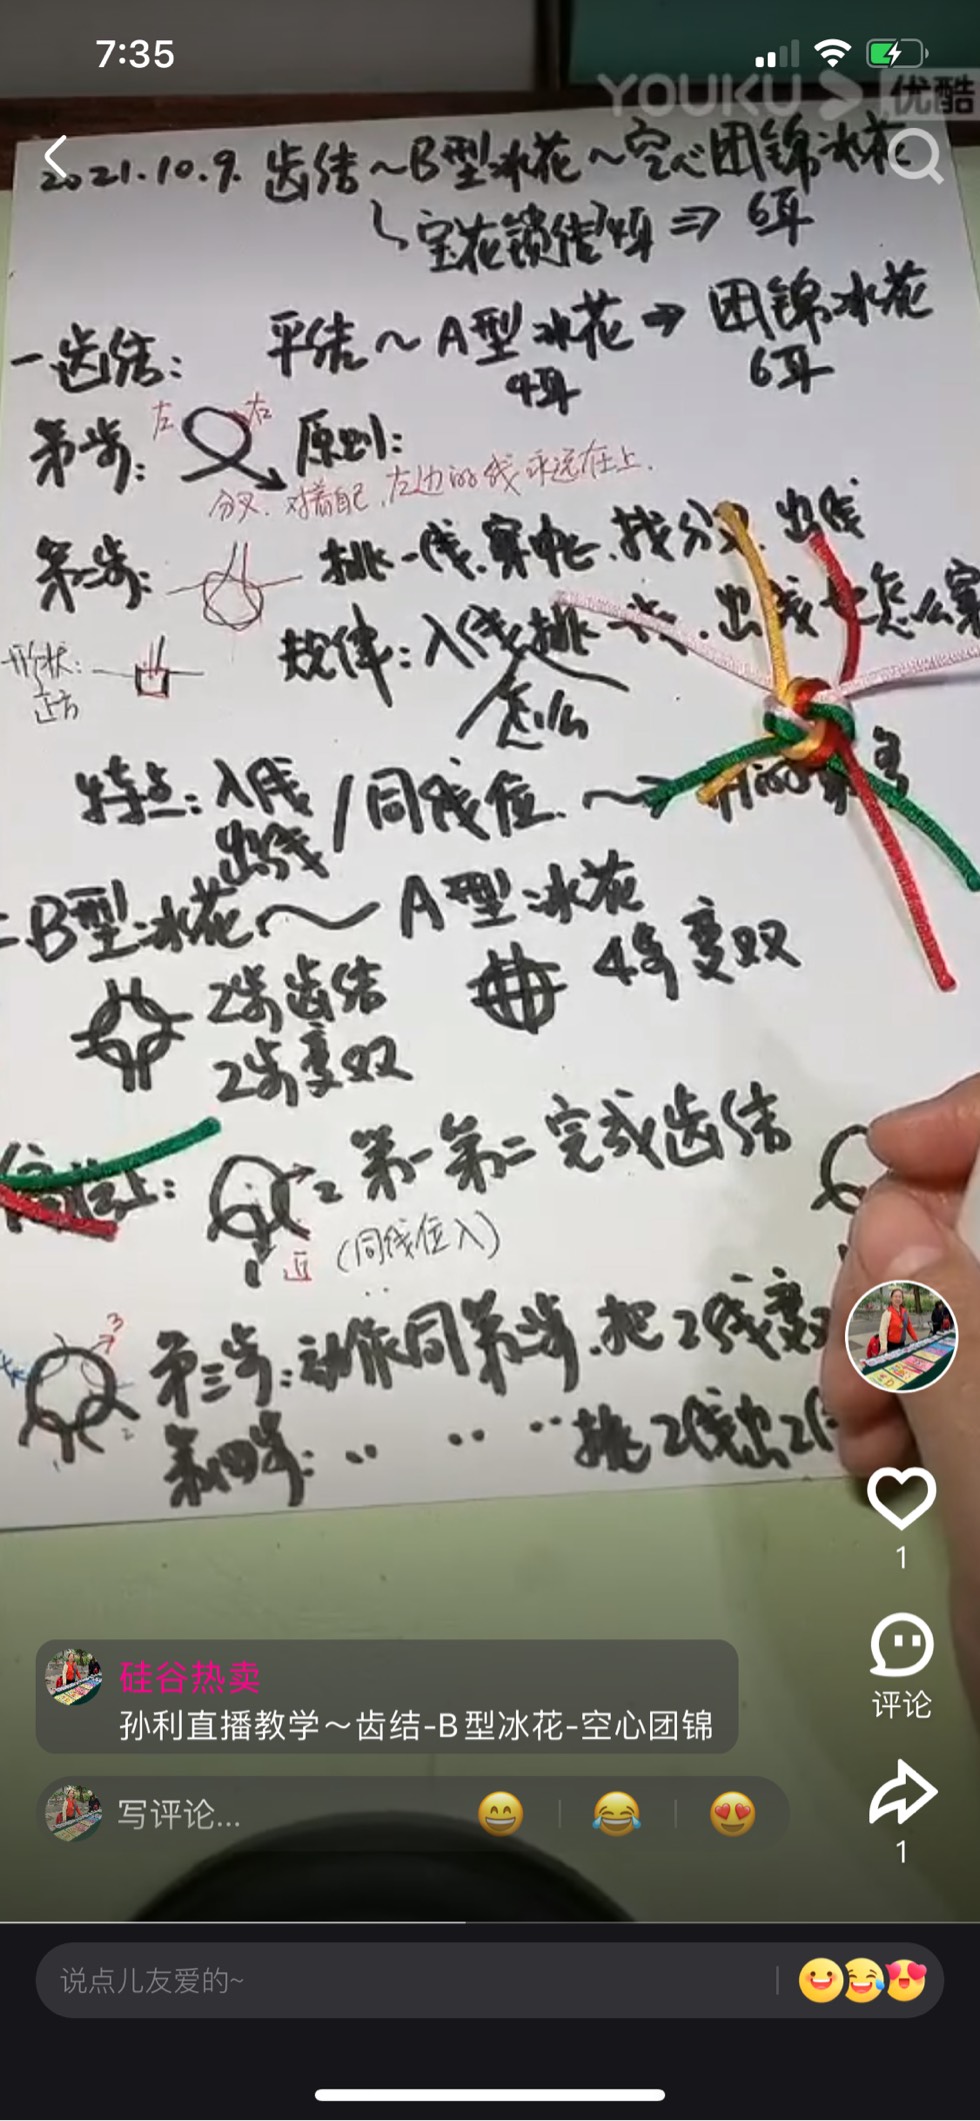 7:35
YOUKU 优酷
2021.10.9. 齿结～B型冰花～空心团锦冰花
宝花锁结4耳 ⇒ 6耳
一齿结： 平结～A型冰花→团锦冰花
4耳 6耳
第一步： 左 右 原则：
分叉.对着配.左边的线永远在上.
第二步： 挑一线.穿中心.找分叉.出线
规律：入线挑一线.出线 怎么穿
怎么
形状：
正方
特点：入线 / 同线位 ～→
出线
二B型冰花～A型冰花
2步齿结 4步变双
2步变双
2 第一第二完成齿结
1 近 （同线位入）
3
第三步：动作同第一步.把2线变双
2
1
第四步：〃 〃 〃 挑2线出2
硅谷热卖
孙利直播教学～齿结-B型冰花-空心团锦
写评论...
1
评论
1
说点儿友爱的~